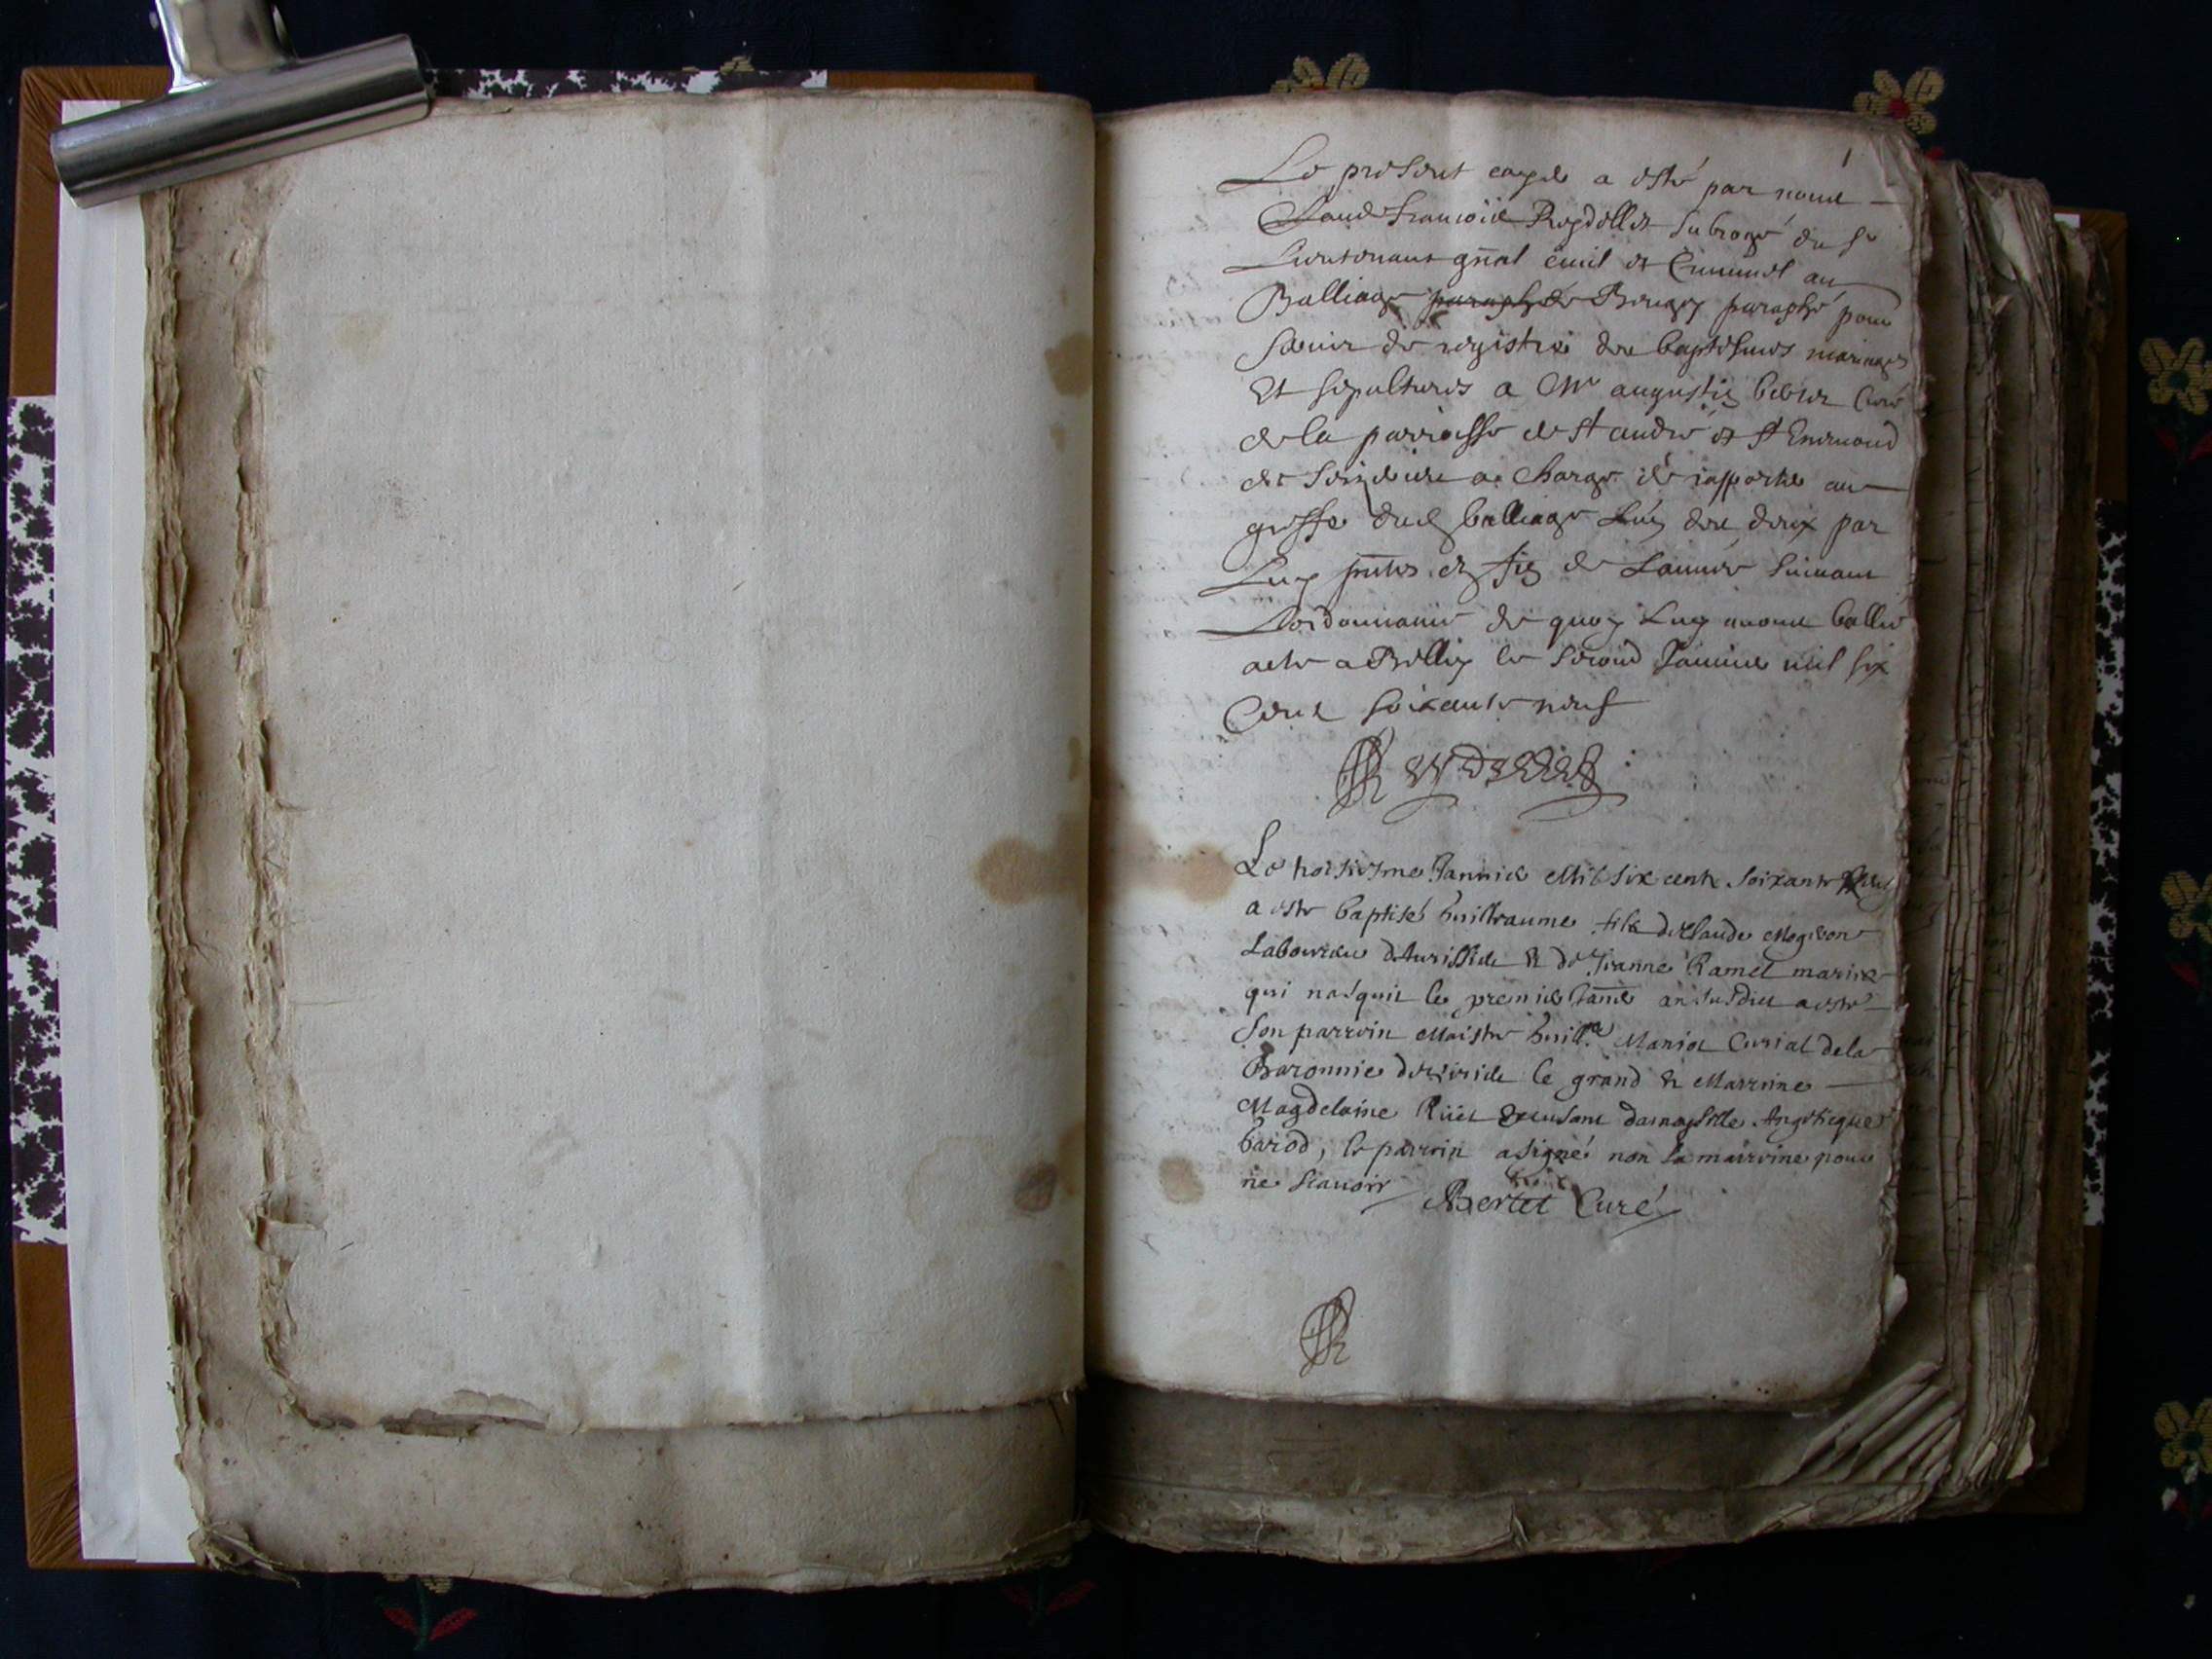 1
Le present cayer a esté par nous
Claude François Reydellet subrogé du sr
Lieutenant gnal civil et Criminel au
Balliage paraphé de Beugey paraphé pour
servir de registre des baptesmes mariages
Et sepultures a Mr augustin Curé
de la parroisse de st andré et st
de a charge de rapporter au
greffe dud balliage Lun des deux par
Luy en fin de Lannée suivant
Lordonnance de quoy Luy avons ballié
acte a Belley le second Janvier mil six
Cens soixante neuf
Reydellet
Le troisiesme Janvier Mil six cent soixante
a este baptisé Guilliaume fils de Claude
Laboureur & de Jeanne Ramel mariez
qui nasquit le premier Janer an susdict a esté
Son parroin Maistre Guille Curial de la
Baronnie le grand & Marrine
Magdelaine damoyselle Angelicque
barod, le parroin a signé non la marroine pour
ne scavoir Bertet Curé